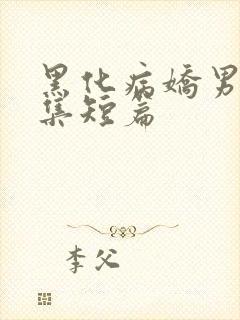 黑化病嬌男
集短篇
李父